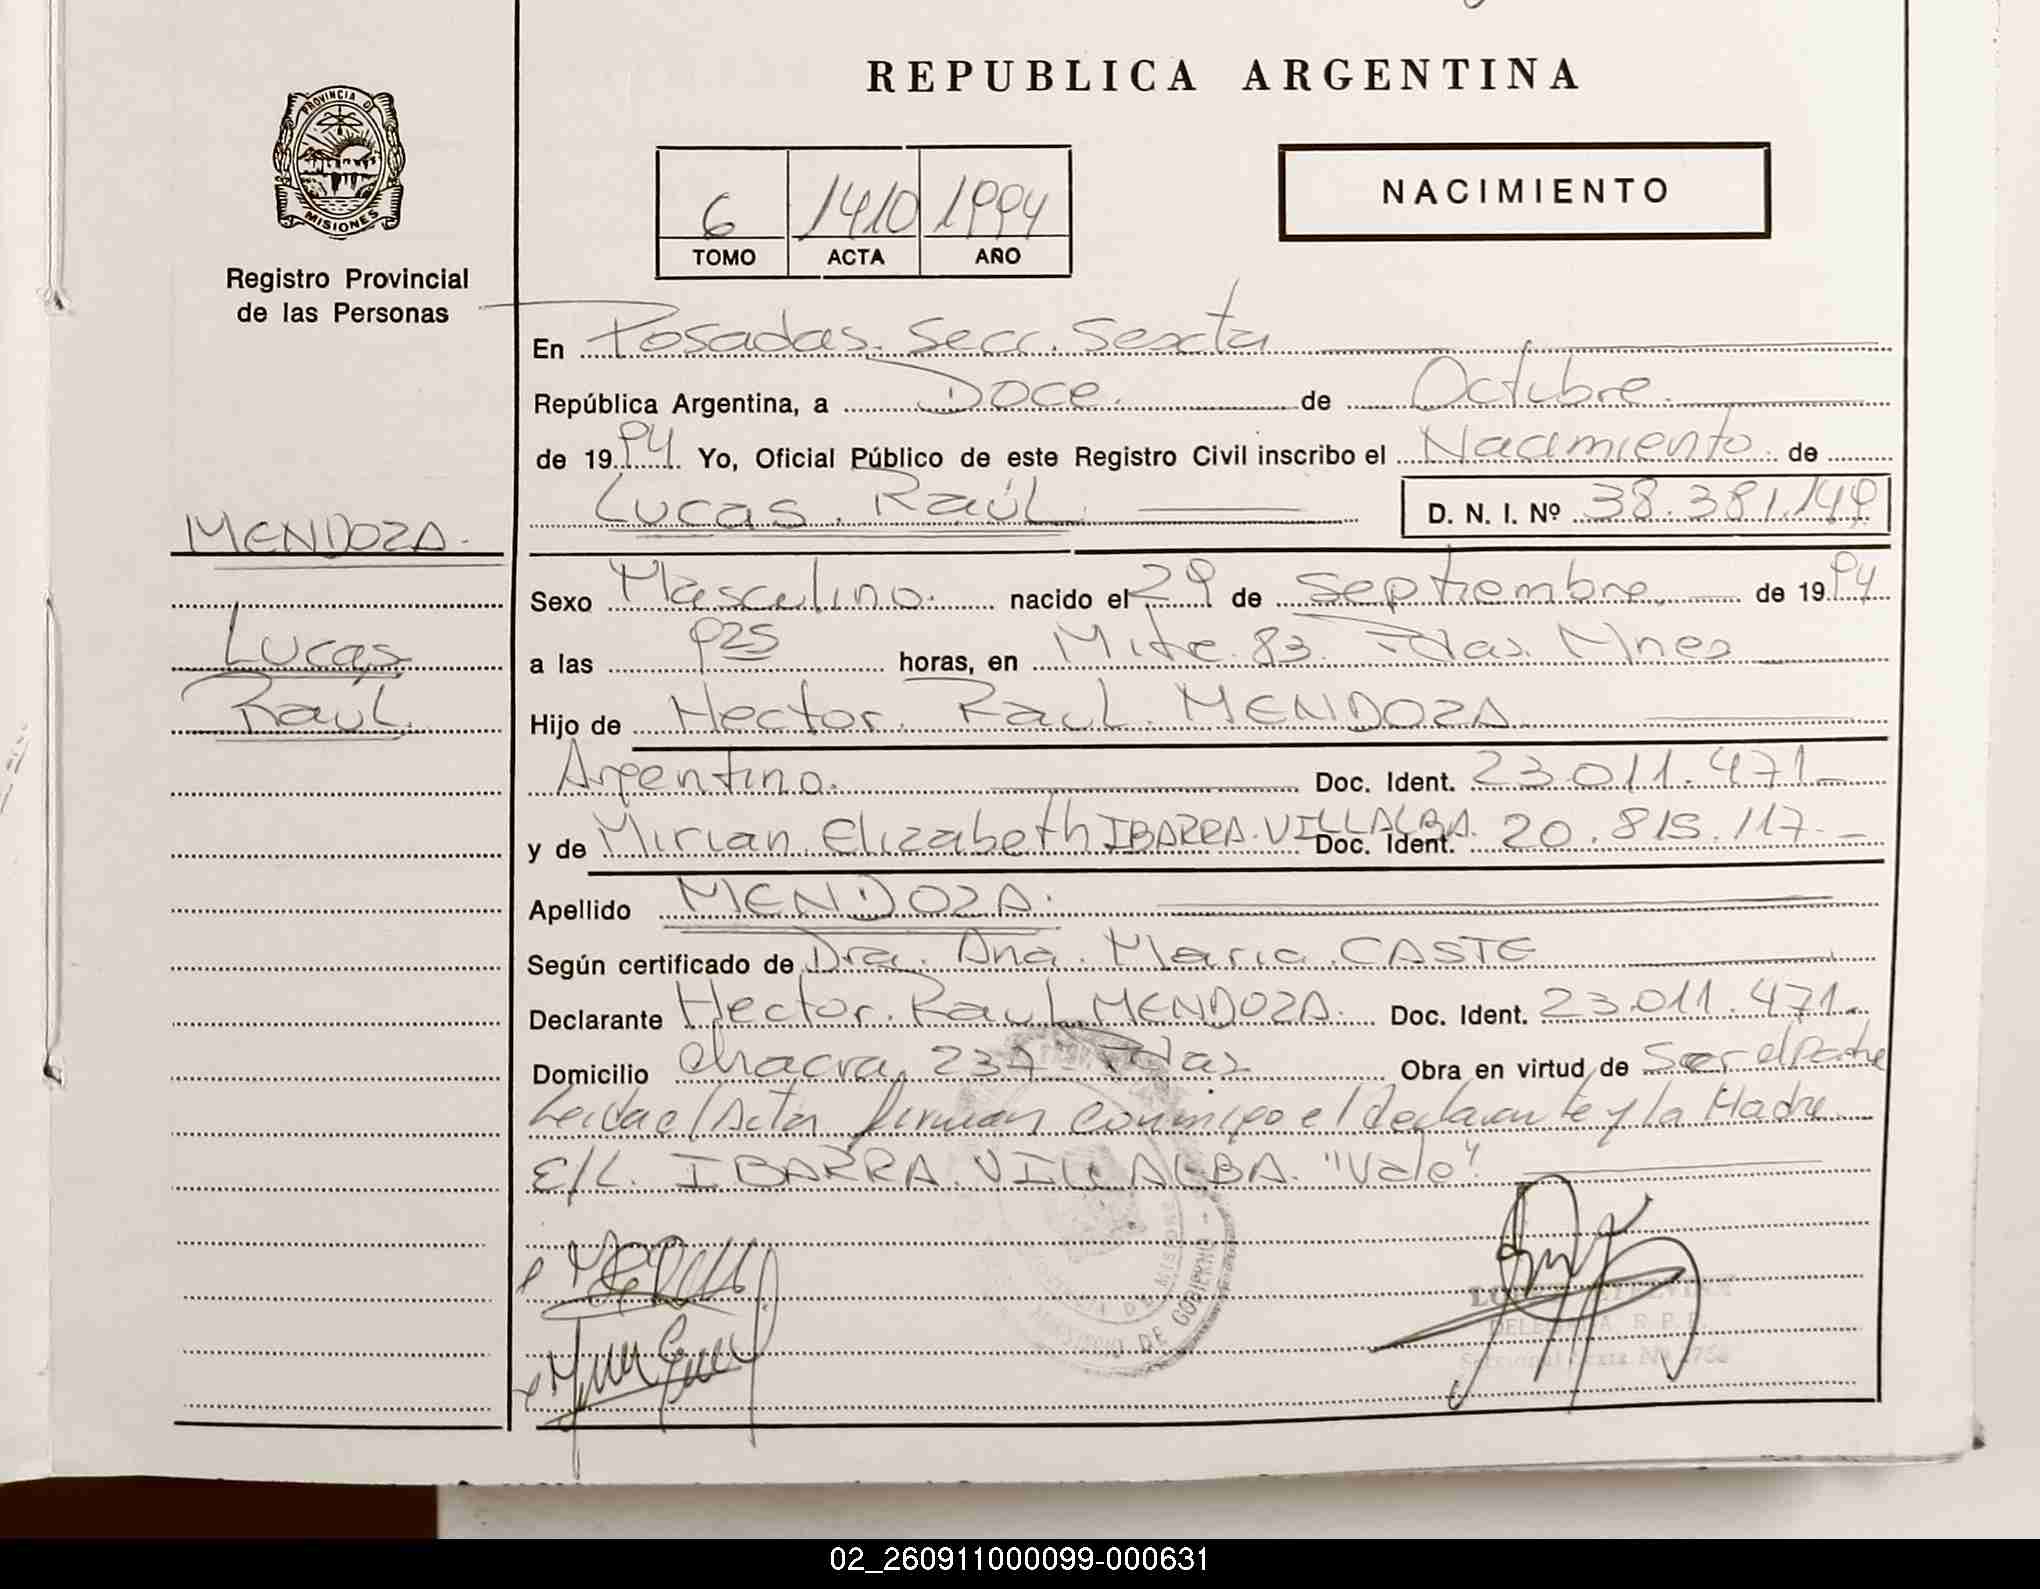 REPUBLICA ARGENTINA
PROVINCIA DE
MISIONES
Registro Provincial
de las Personas
6 1410 1994
TOMO ACTA AÑO
NACIMIENTO
En Posadas. Secc. Sexta
República Argentina, a Doce. de Octubre.
de 1994. Yo, Oficial Público de este Registro Civil inscribo el Nacimiento. de
Lucas. Raúl. D. N. I. Nº 38.381.149
MENDOZA.
Lucas
Raul.
Sexo Masculino. nacido el 29 de septiembre. de 1994
a las 925 horas, en Mitre. 83. Pdas. Mnes
Hijo de Hector. Raul. MENDOZA
Argentino. Doc. Ident. 23.011.471.
y de Mirian Elizabeth IBARRA. VILLALBA. Doc. Ident. 20.815.117.
Apellido MENDOZA.
Según certificado de Dra. Ana. Maria. CASTE
Declarante Hector. Raul MENDOZA. Doc. Ident. 23.011.471.
Domicilio chacra 237 Pdas Obra en virtud de Ser el Padre
Leida el Acta firman conmigo el declarante y la Madre.
E/L. IBARRA. VILLALBA. "Vale"
PROVINCIA DE MISIONES
MINISTERIO DE GOBIERNO
R. P. P.
02_260911000099-000631